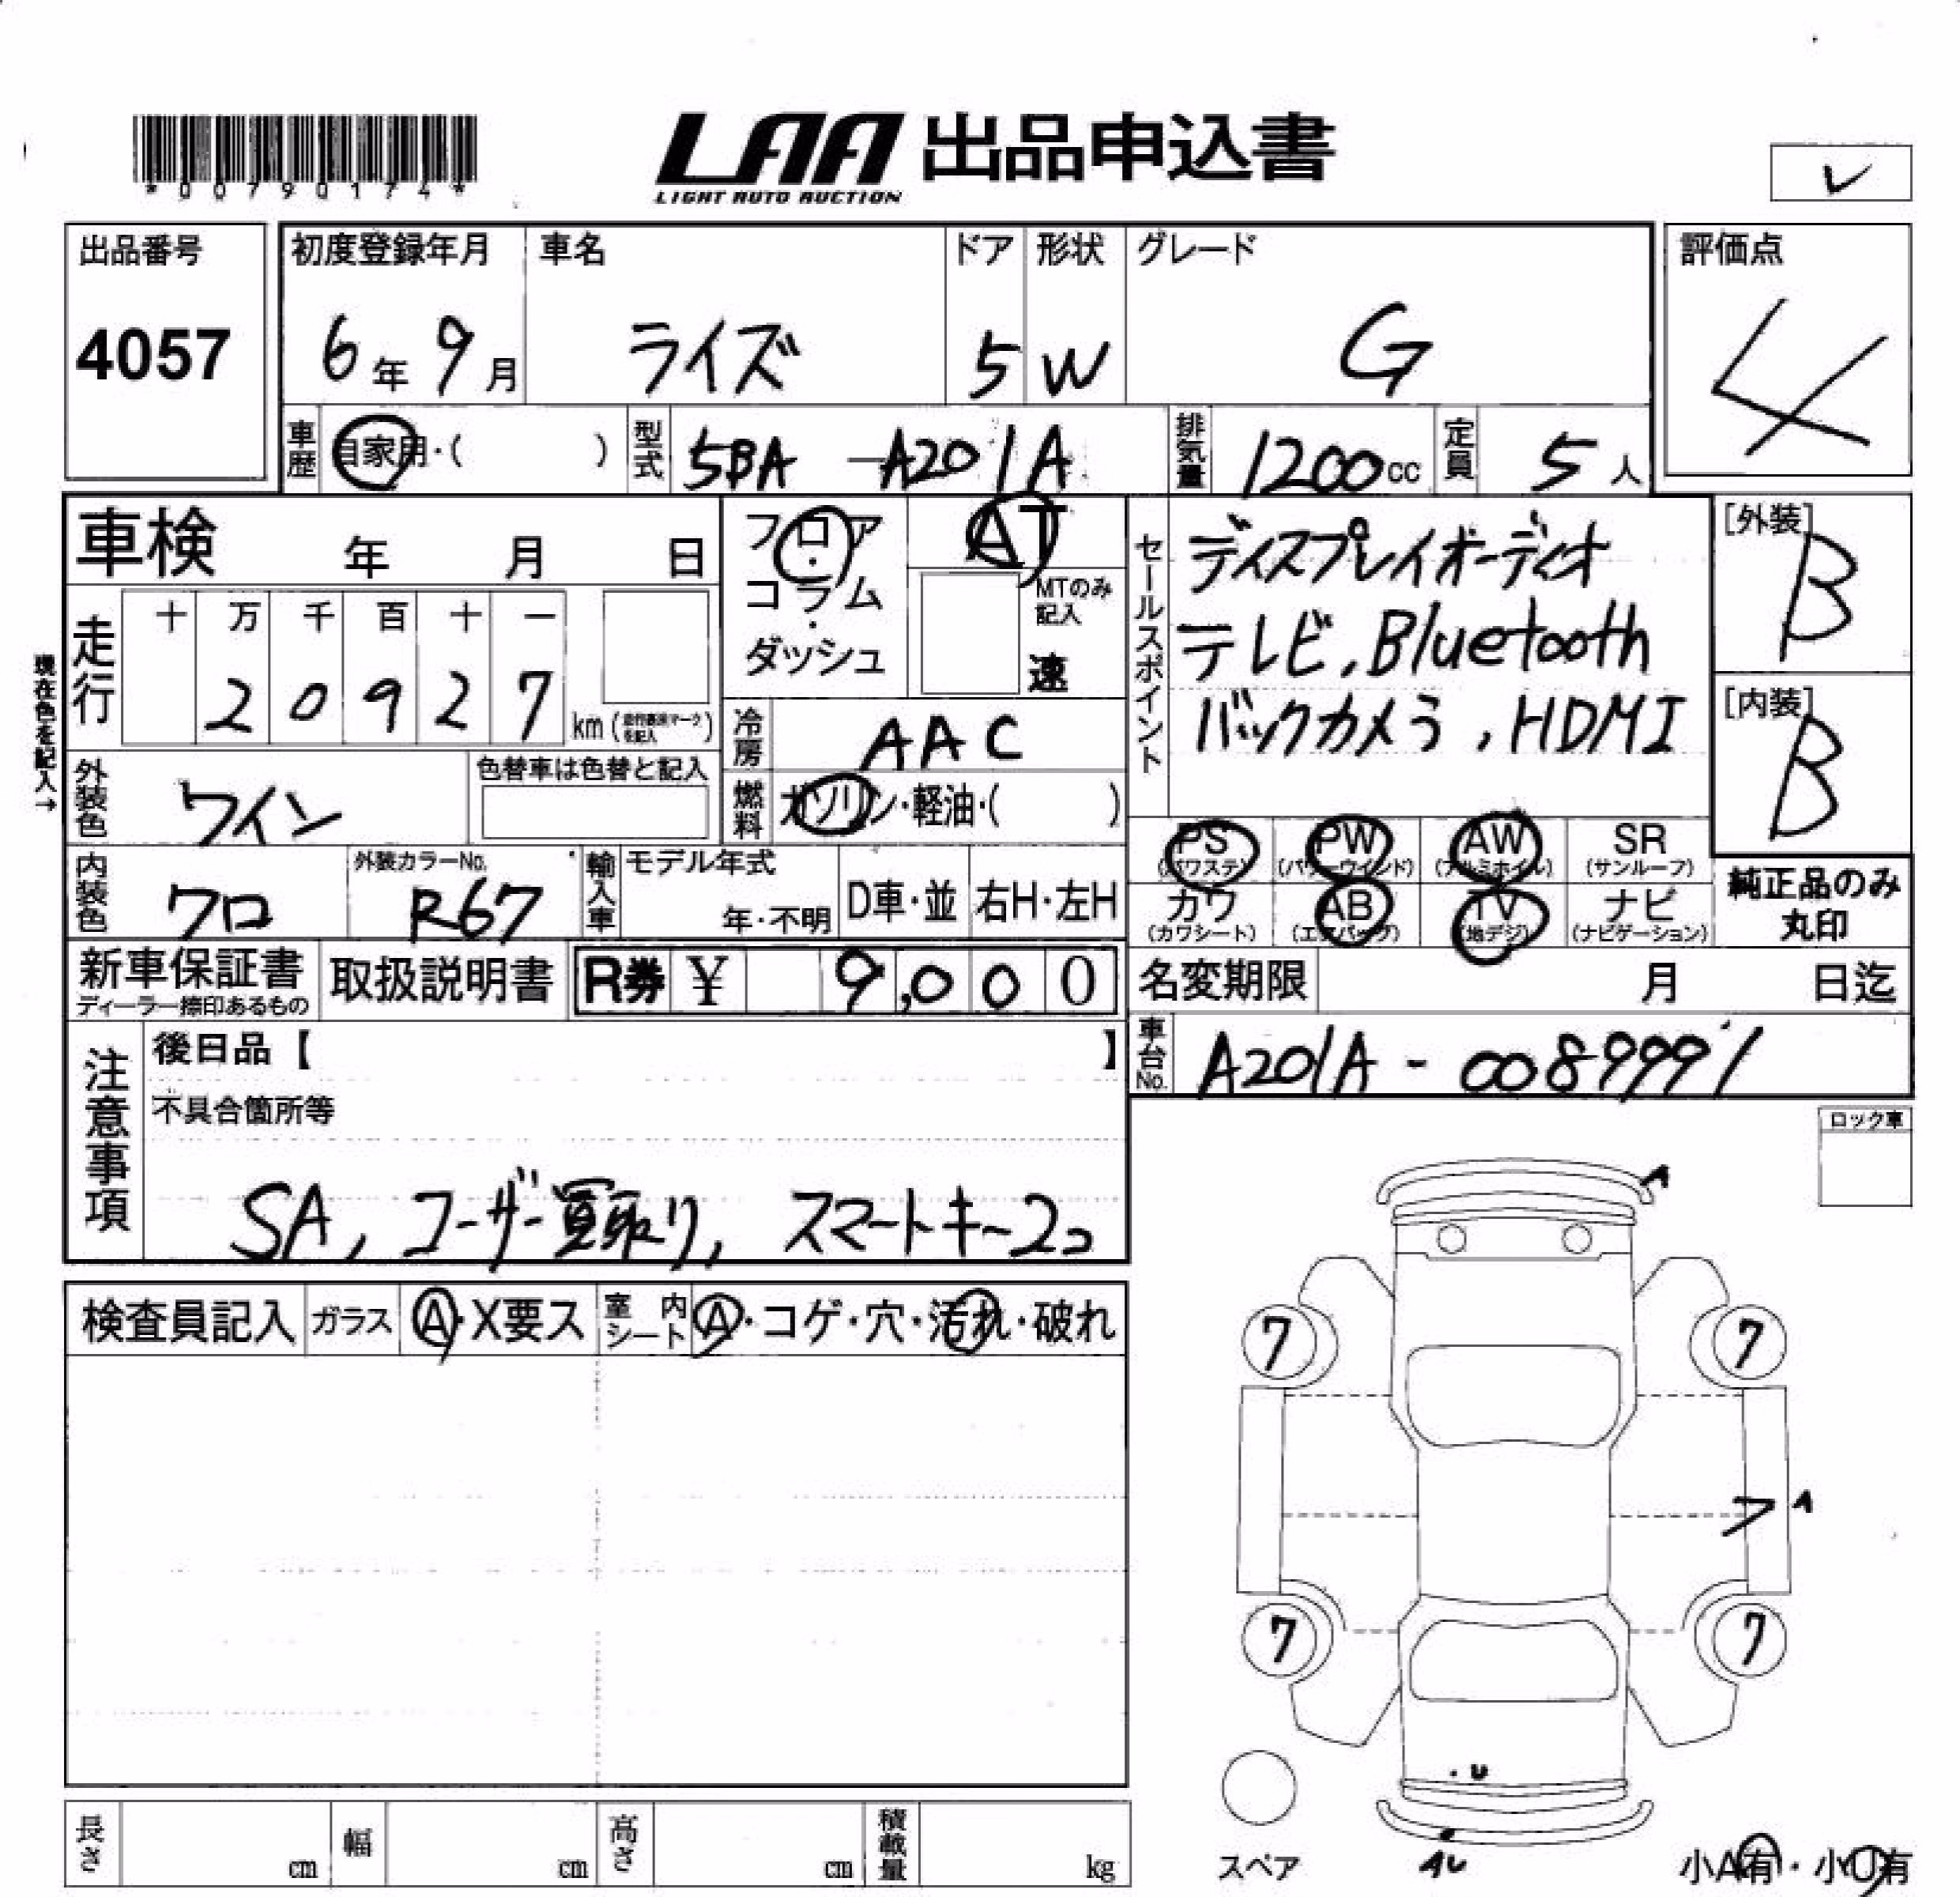 *00790174*
LAA 出品申込書
LIGHT AUTO AUCTION
レ
出品番号
4057
初度登録年月
6年 9月
車名
ライズ
ドア
5
形状
W
グレード
G
評価点
4
車歴 自家用・( )
型式 5BA-A201A
排気量 1200cc
定員 5人
車検 年 月 日
フロア・コラム・ダッシュ
AT
MTのみ記入
速
セールスポイント
ディスプレイオーディオ
テレビ,Bluetooth
バックカメラ,HDMI
[外装]
B
[内装]
B
現在色を記入→
走行
十 万 千 百 十 一
2 0 9 2 7 km
冷房 AAC
燃料 ガソリン・軽油・( )
外装色 ワイン
色替車は色替と記入
内装色 クロ
外装カラーNo.
R67
輸入車 モデル年式
年・不明
D車・並
右H・左H
PS (パワステ)
PW (パワーウインド)
AW (アルミホイル)
SR (サンルーフ)
カワ (カワシート)
AB (エアバッグ)
TV (地デジ)
ナビ (ナビゲーション)
純正品のみ
丸印
新車保証書
ディーラー捺印あるもの
取扱説明書
R券 ¥ 9,000
名変期限 月 日迄
車台No. A201A-0089991
注意事項
後日品【 】
不具合箇所等
SA, ユーザー買取り, スマートキー2コ
ロック車
検査員記入
ガラス A・X要ス
室内シート A・コゲ・穴・汚れ・破れ
A
7 7
A
7 7
・U
AU
スペア
小A有・小U有
長さ cm
幅 cm
高さ cm
積載量 kg